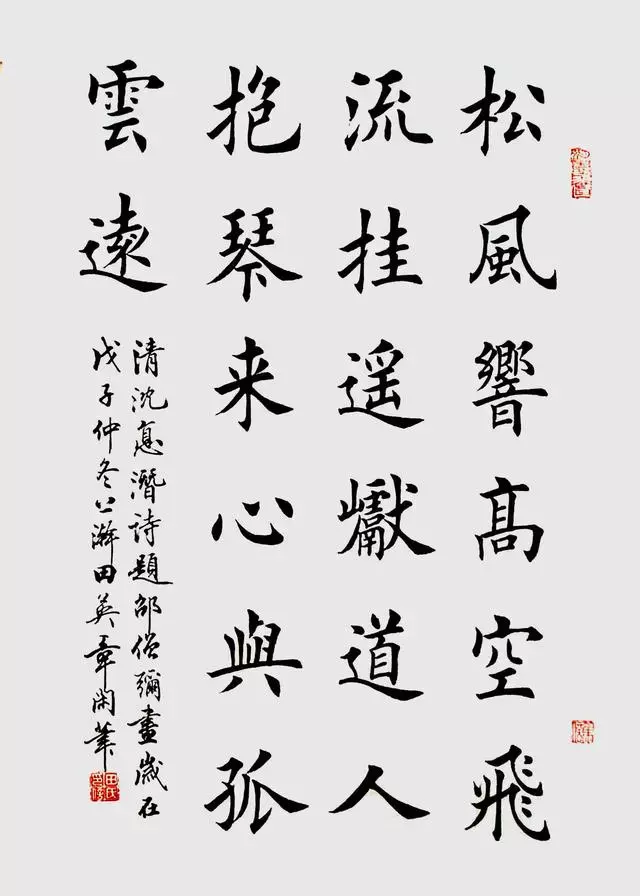 松風響髙空飛
流挂遥巘道人
抱琴来心與孤
雲遠
清沈惪潛詩題邵僧彌畫歲在
戊子仲冬田英章閑筆